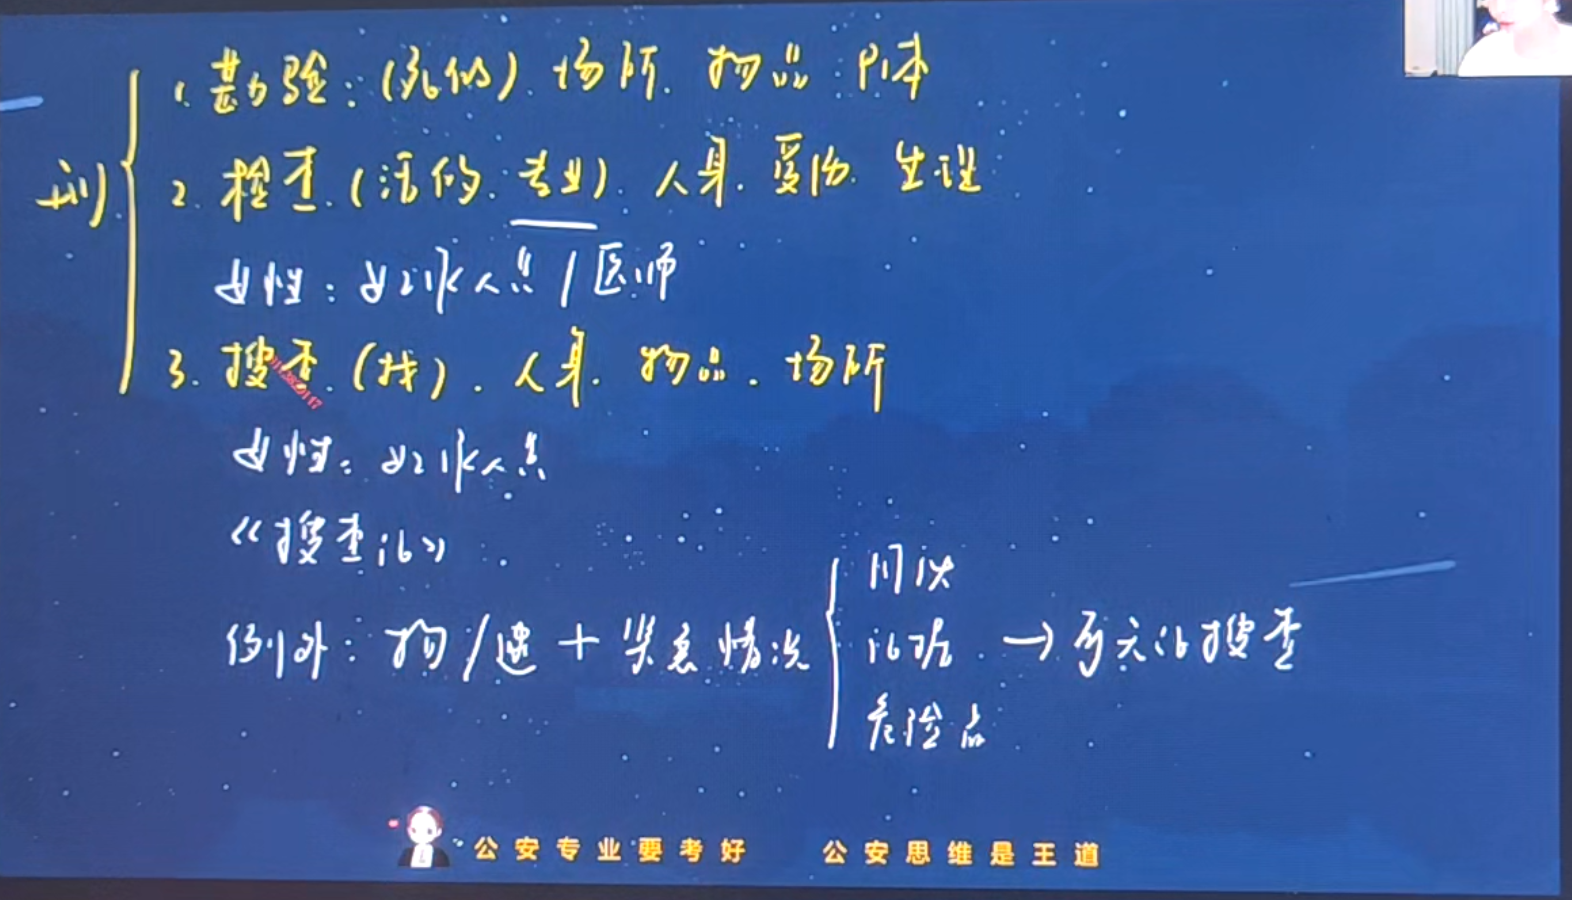 刑
1. 勘验：(死的) 场所. 物品. 尸体
2. 检查.(活的. 专业). 人身. 受伤. 生理
女性：女工作人员/医师
3. 搜查.(找). 人身. 物品. 场所
女性：女工作人员
《搜查证》
例外：拘/逮 + 紧急情况
同伙
证据 → 可无证搜查
危险品
公安专业要考好 公安思维是王道